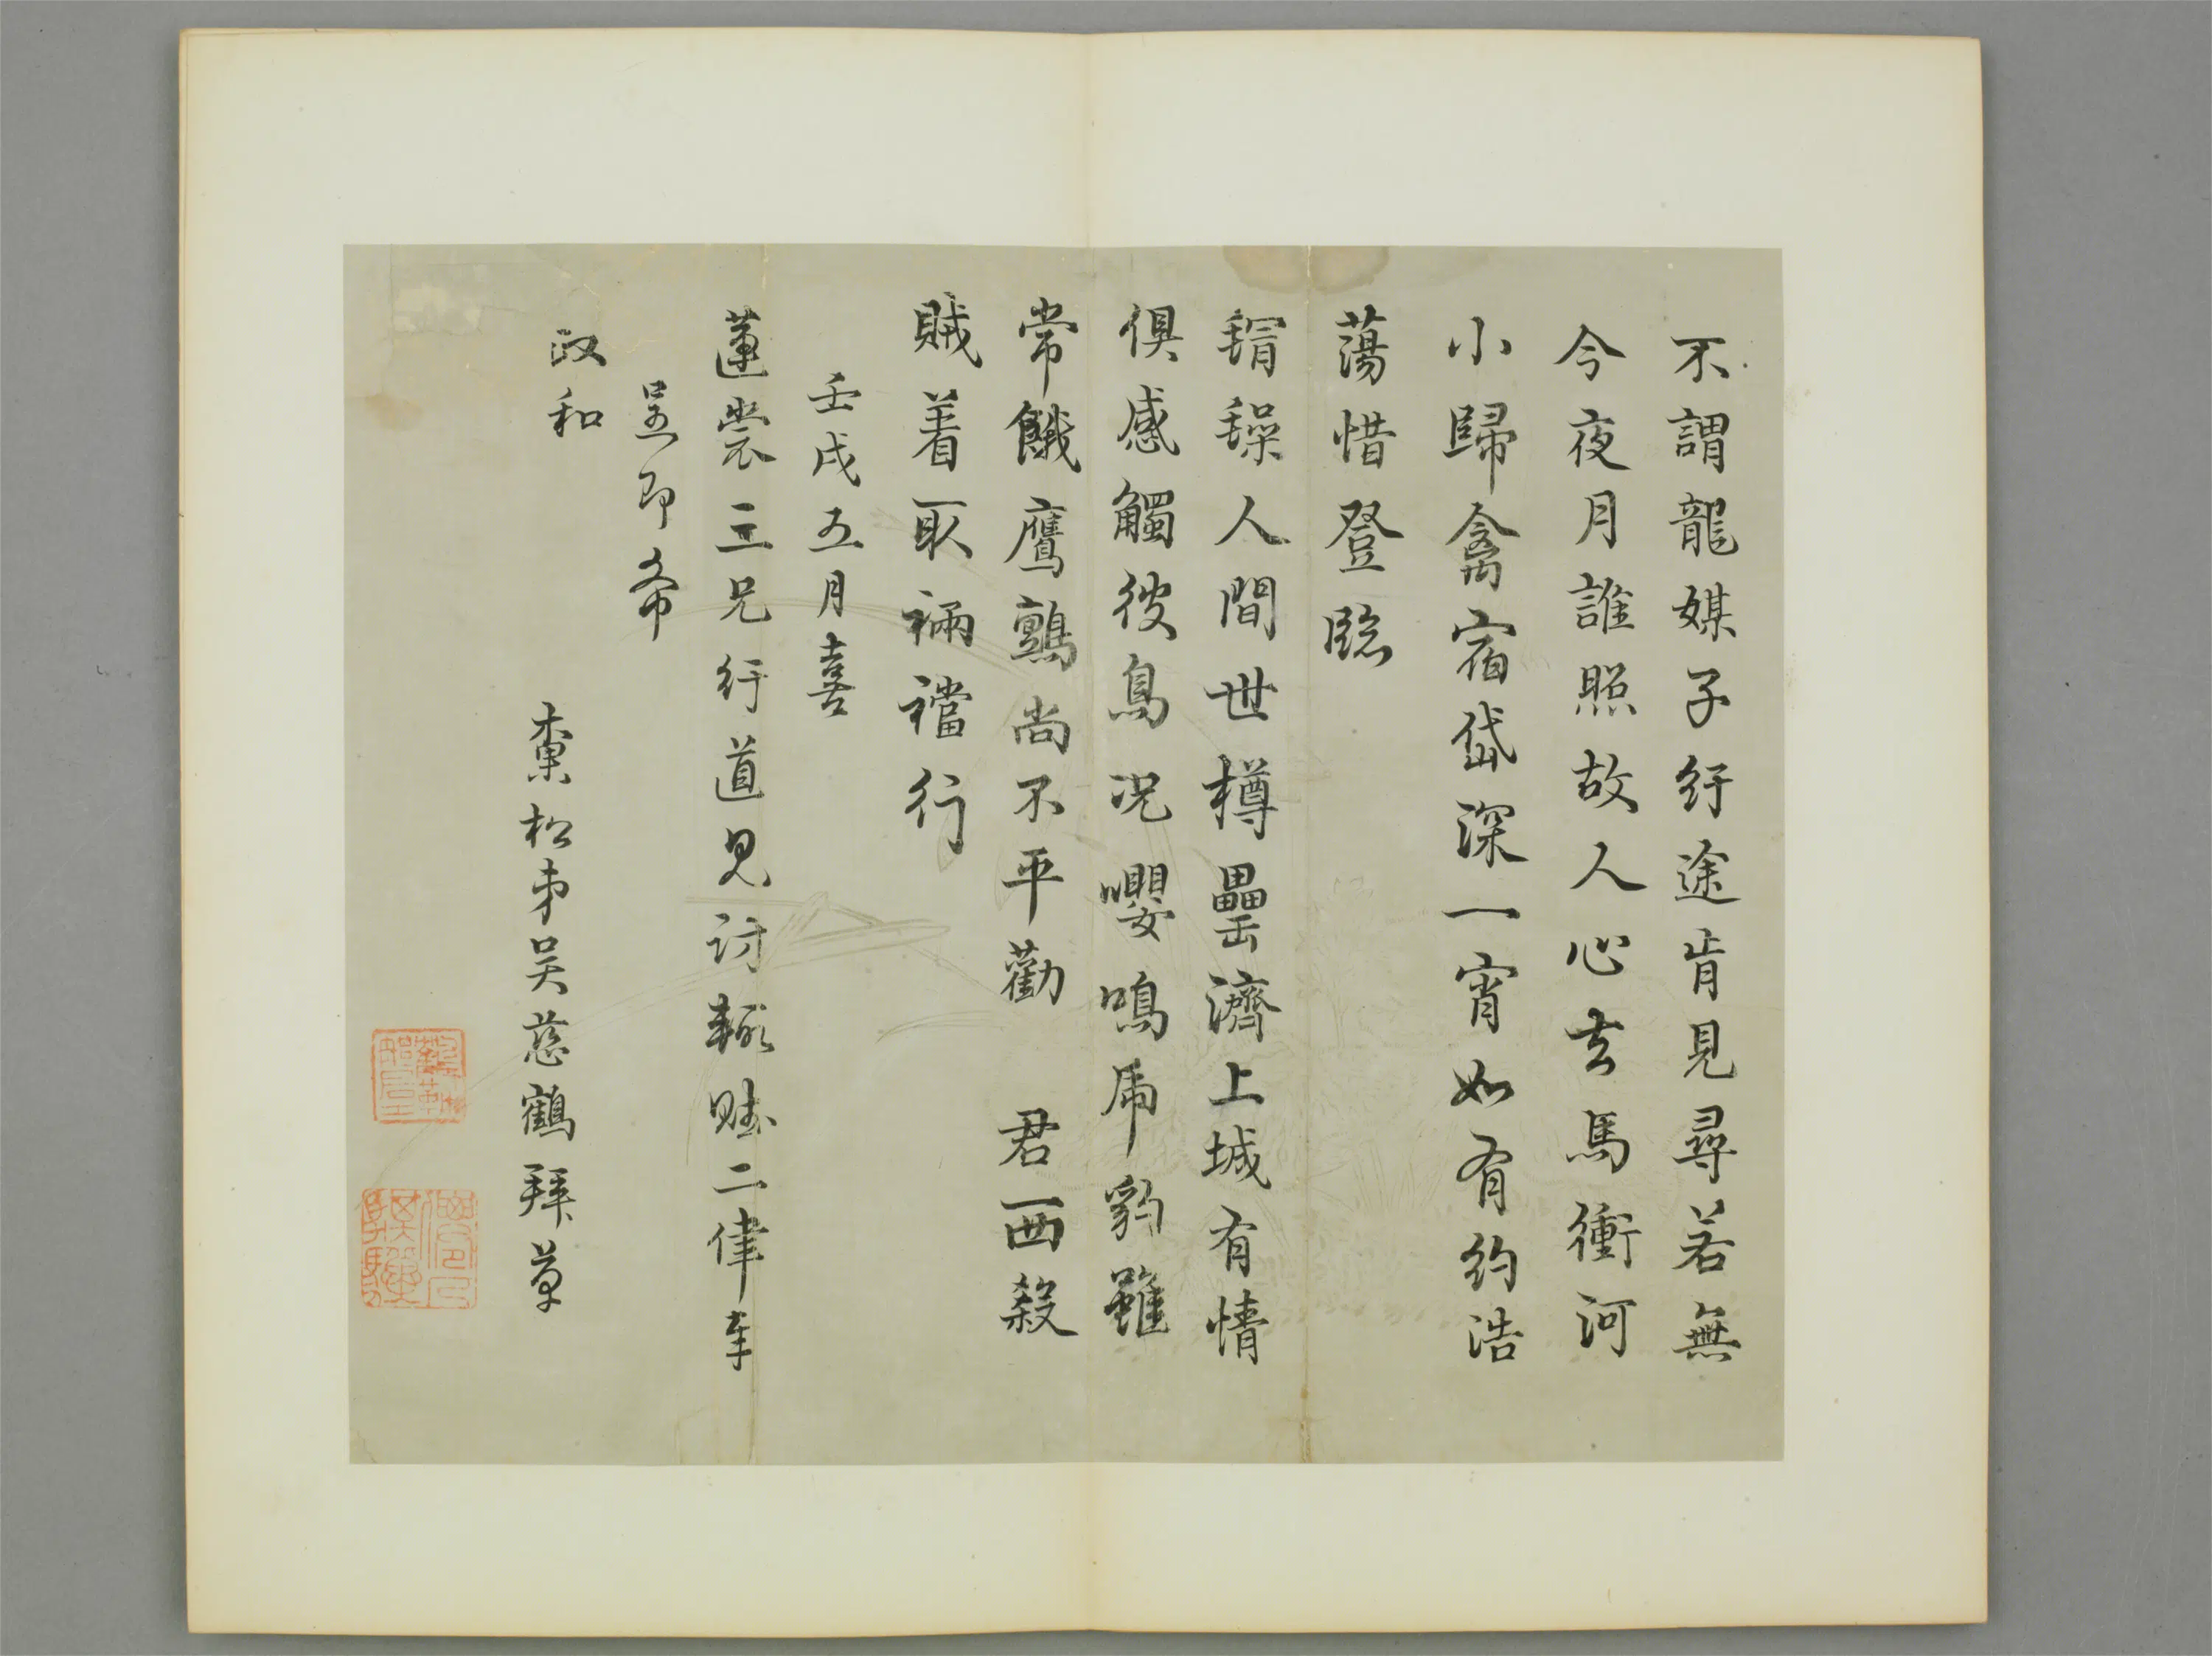 不謂龍媒子紆途肯見尋若無
今夜月誰照故人心去馬衝河
小歸禽宿岱深一宵如有約浩
蕩惜登臨
人間世樽罍濟上城有情
俱感觸彼鳥況嚶鳴虎豹雖
常餓鷹鸇尚不平勸 君一西殺
賊着取裲襠行
壬戌五月喜
蓮裳三兄紆道見訪輒賦二律奉
呈即希
政和
棗松弟吳慈鶴拜草